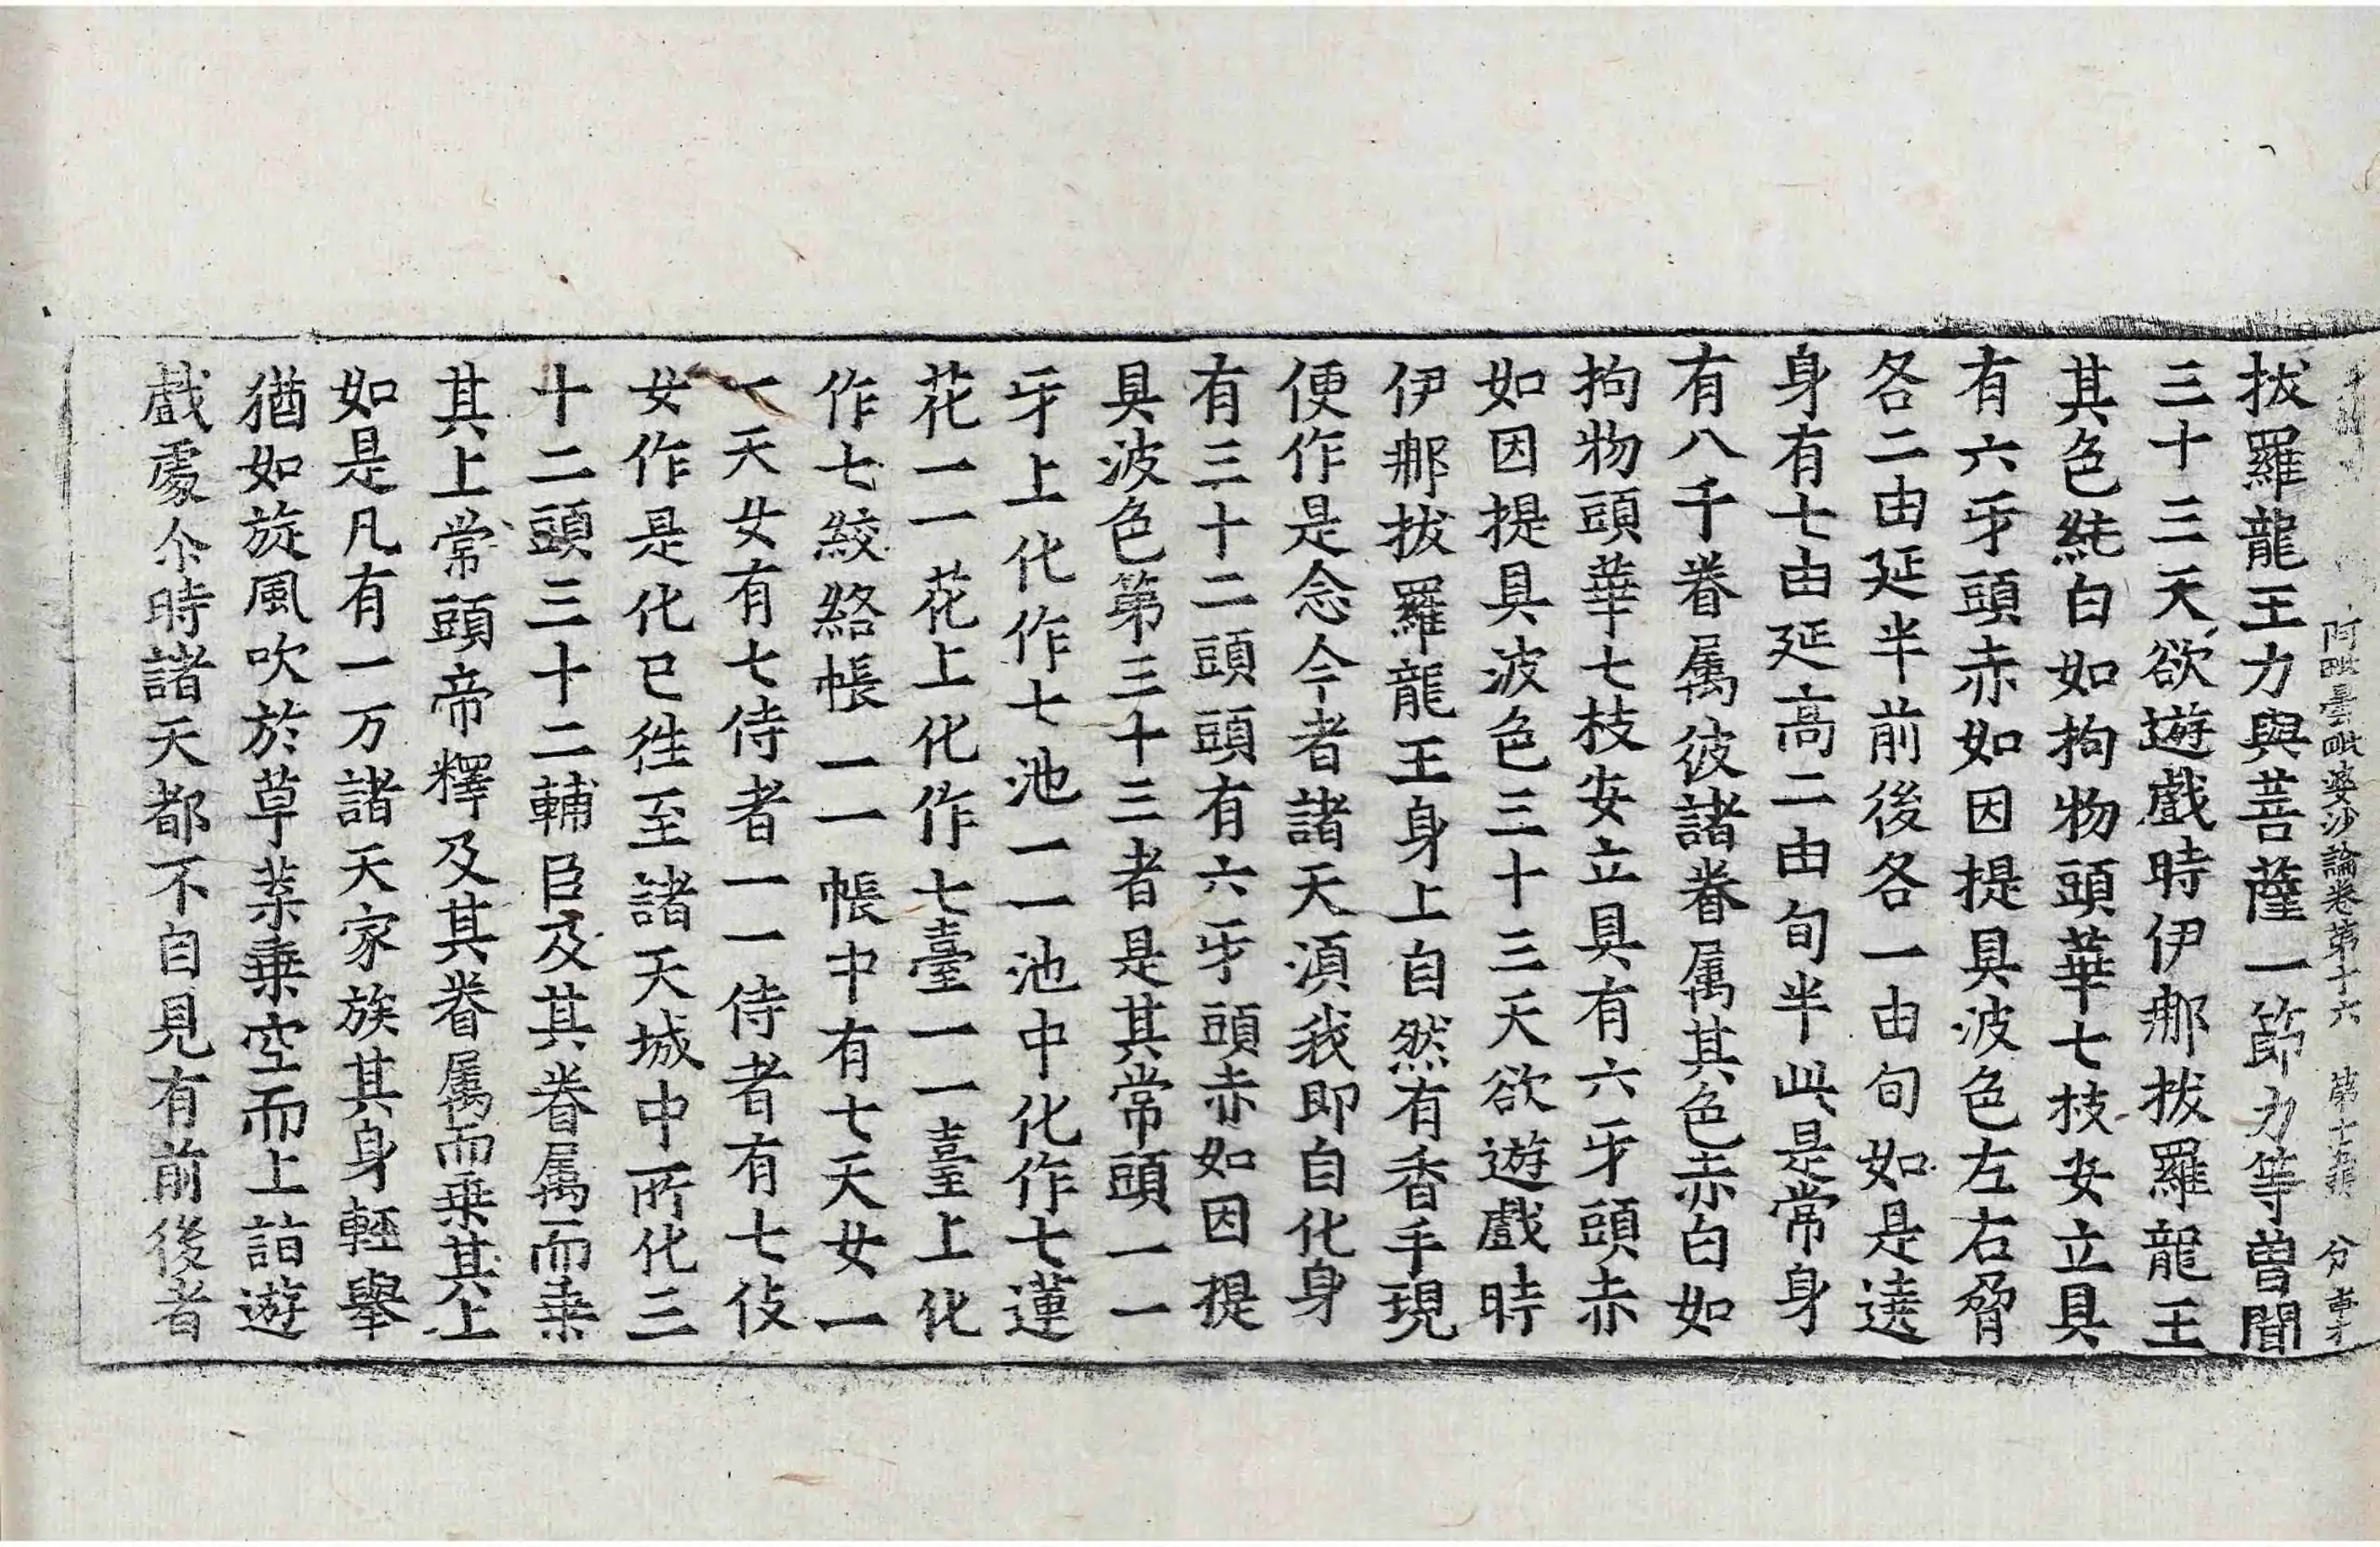 阿毗曇毗婆沙論卷第十六　第十九張　分
拔羅龍王力與菩薩一節力等曾聞
三十三天欲遊戲時伊那拔羅龍王
其色純白如拘物頭華七枝安立具
有六牙頭赤如因提具波色左右脅
各二由延半前後各一由旬如是遶
身有七由延高二由旬半此是常身
有八千眷属彼諸眷属其色赤白如
拘物頭華七枝安立具有六牙頭赤
如因提具波色三十三天欲遊戲時
伊那拔羅龍王身上自然有香手現
便作是念今者諸天湏我即自化身
有三十二頭頭有六牙頭赤如因提
具波色第三十三者是其常頭一一
牙上化作七池一一池中化作七蓮
花一一花上化作七臺一一臺上化
作七絞絡帳一一帳中有七天女一
一天女有七侍者一一侍者有七伎
女作是化已徃至諸天城中所化三
十二頭三十二輔臣及其眷属而乗
其上常頭帝釋及其眷属而乗其上
如是凡有一万諸天家族其身輕舉
猶如旋風吹於草葉乗空而上詣遊
戲處尒時諸天都不自見有前後者